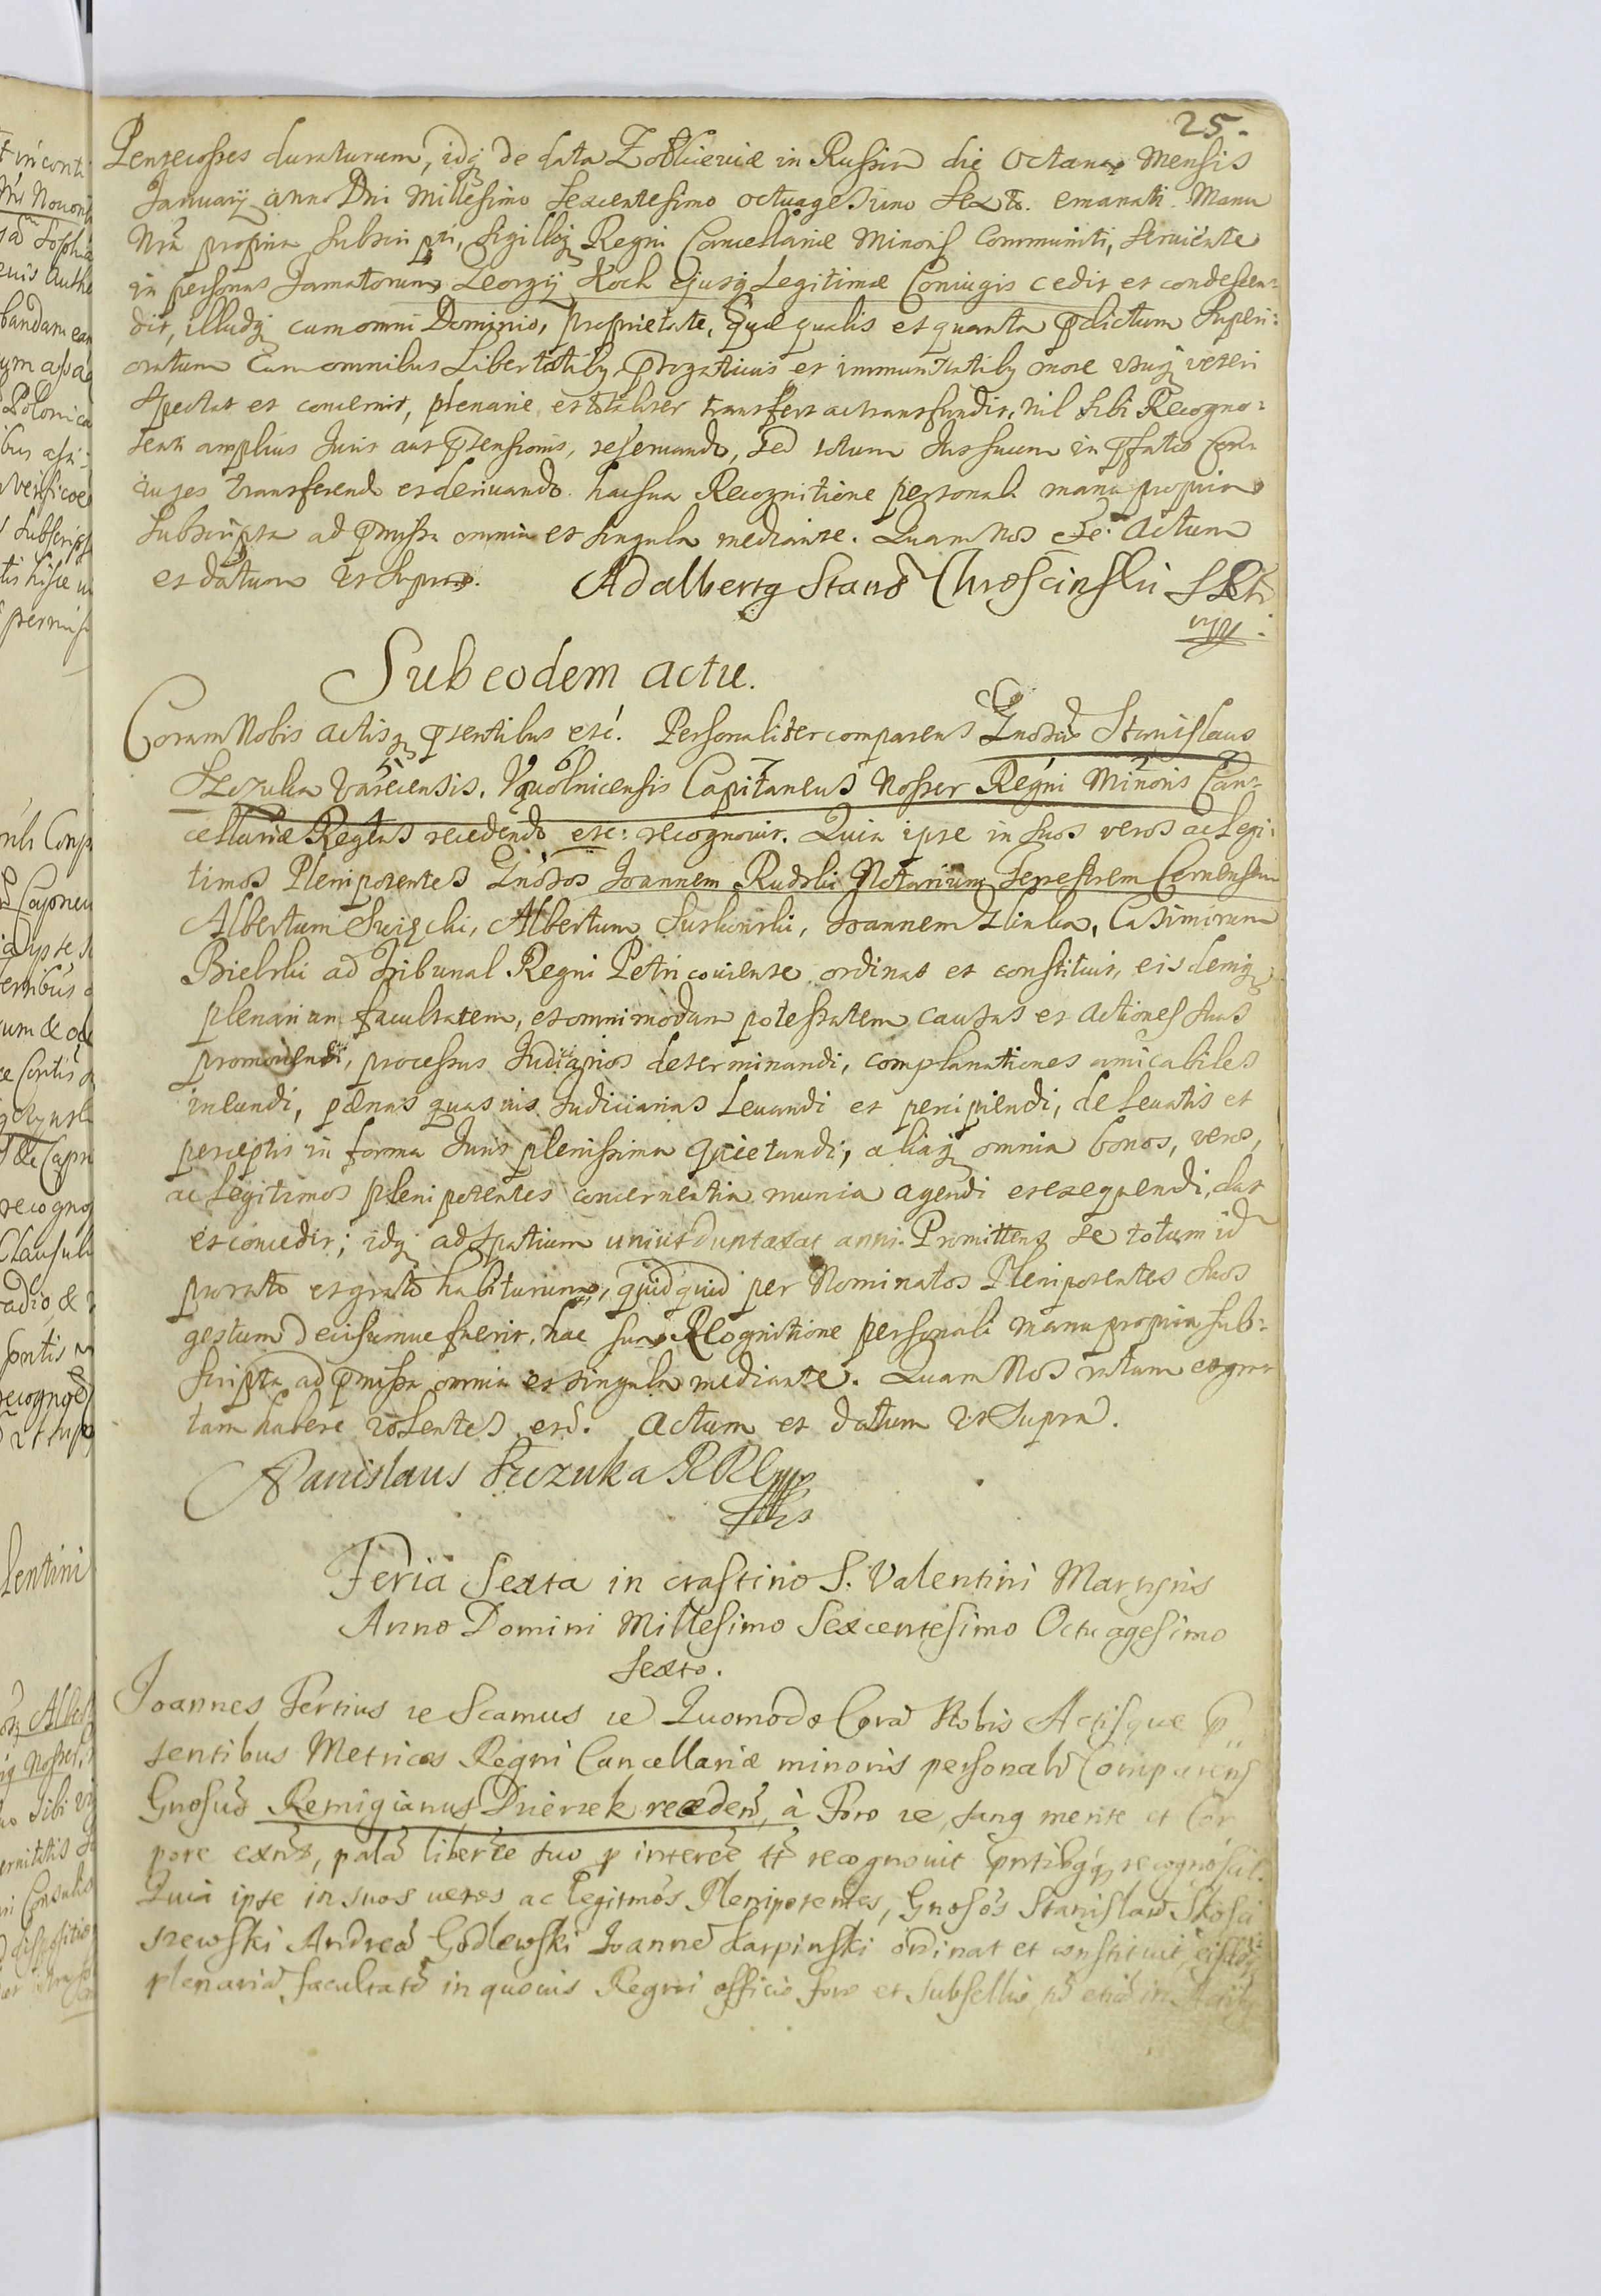 25.
Pentecostes duraturum, idq de data Zolkieviæ in Russia die Octaua Mensis
Januarij anno Dni Millesimo Sexcentesimo octuagesimo Sexto. emanati Manu
Nrã propria subscripti, Sigilloq Regni Cancellariæ Minoris Communiti, seruiente
in personas famatorum Georgij Koch ejusq Legitimæ Coniugis cedit et condescen=
dit, illudq cum omni Dominio, proprietate, Quæ qualis et quanta pdictum Superi:
oratum cum omnibus Libertatibq prgatiuis et immunitatibq more usuq veteri
Spectat et concernit, plenarie et totaliter transfert ac transfundit, nil sibi Recogno=
scens amplius Juris aut ptensionis, reseruando, sed totum Jus suum in pfatos Con
iuges transferendo et deriuando. hac sua Recognitione personali manu propria
subscripta ad pmissa omnia et singula mediante. Quam Nos etc. Actum
et datum ut supra. Adalbertq Stans Chroscinski SRM
mpp.
Sub eodem actu.
Coram Nobis actisq psentibus etc. Personaliter comparens Gnosus Stanislaus
Szczuka Varecensis, Vquolnicensis Capitaneus Noster Regni Minoris Can=
cellariæ Regens recedendo etc: recognouit. Quia ipse in suos veros ac Legi:
timos Plenipotentes Gnosos Joannem Rudzki Notarium Terrestrem Cernensem
Albertum Swięcki, Albertum Suskonski, Joannem Glinka, Casimirum
Bielski ad Tribunal Regni Petricouiense ordinat et constituit, eis demq
plenariam facultatem, et omnimodam potestatem causas et actiones suas
promouendi, processus Judiciarios determinandi, complanationes amicabiles
ineundi, pænas quasuis Judiciarias Leuandi et percipiendi, de Leuatis et
perceptis in forma Juris plenissima quietandi, aliaq omnia bonos, veros,
ac legitimos plenipotentes concernentia munia agendi et exequendi, dat
et concedit; idq ad spatium unius duntaxat anni. Promittens se totum id
pro rato et grato habiturum, quidquid per Nominatos Plenipotentes suos
gestum decisumue fuerit, hac sua Recognitione personali manu propria sub=
scripta ad pmissa omnia et singula mediante. Quam Nos ratam et gra
tam habere volentes etc. Actum et datum ut Supra.
Stanislaus Szczuka RRC mpp
Feria Sexta in crastino S. Valentini Martyris
Anno Domini Millesimo Sexcentesimo Octuagesimo
Sexto.
Joannes Tertius etc Scamus etc Quomodo Corã Nobis Actisque p
sentibus Metrices Regni Cancellariæ minoris personalr Comparens
Gnosus Remigianus Dzierzek recedens, à Foro etc, sanq mente et Cor
pore exns, palã libere suo p interce recognouit pntibqq recognoscit.
Quia ipse in suos ueros ac legitmos Plenipotentes, Gnosos Stanislaũ Skosci
szewski Andreã Godlewski Joannẽ Karpinski ordinat et constituit, eisdq
plenariã facultatẽ in quouis Regni officio foro et Subsellio,